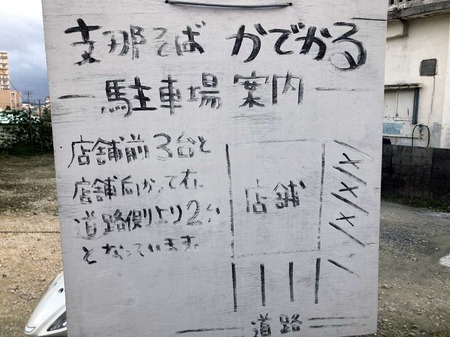 支那そば かでかる
駐車場案内
店舗前3台と
店舗向かって右、
道路側より2台
となっています。
店舗
道路